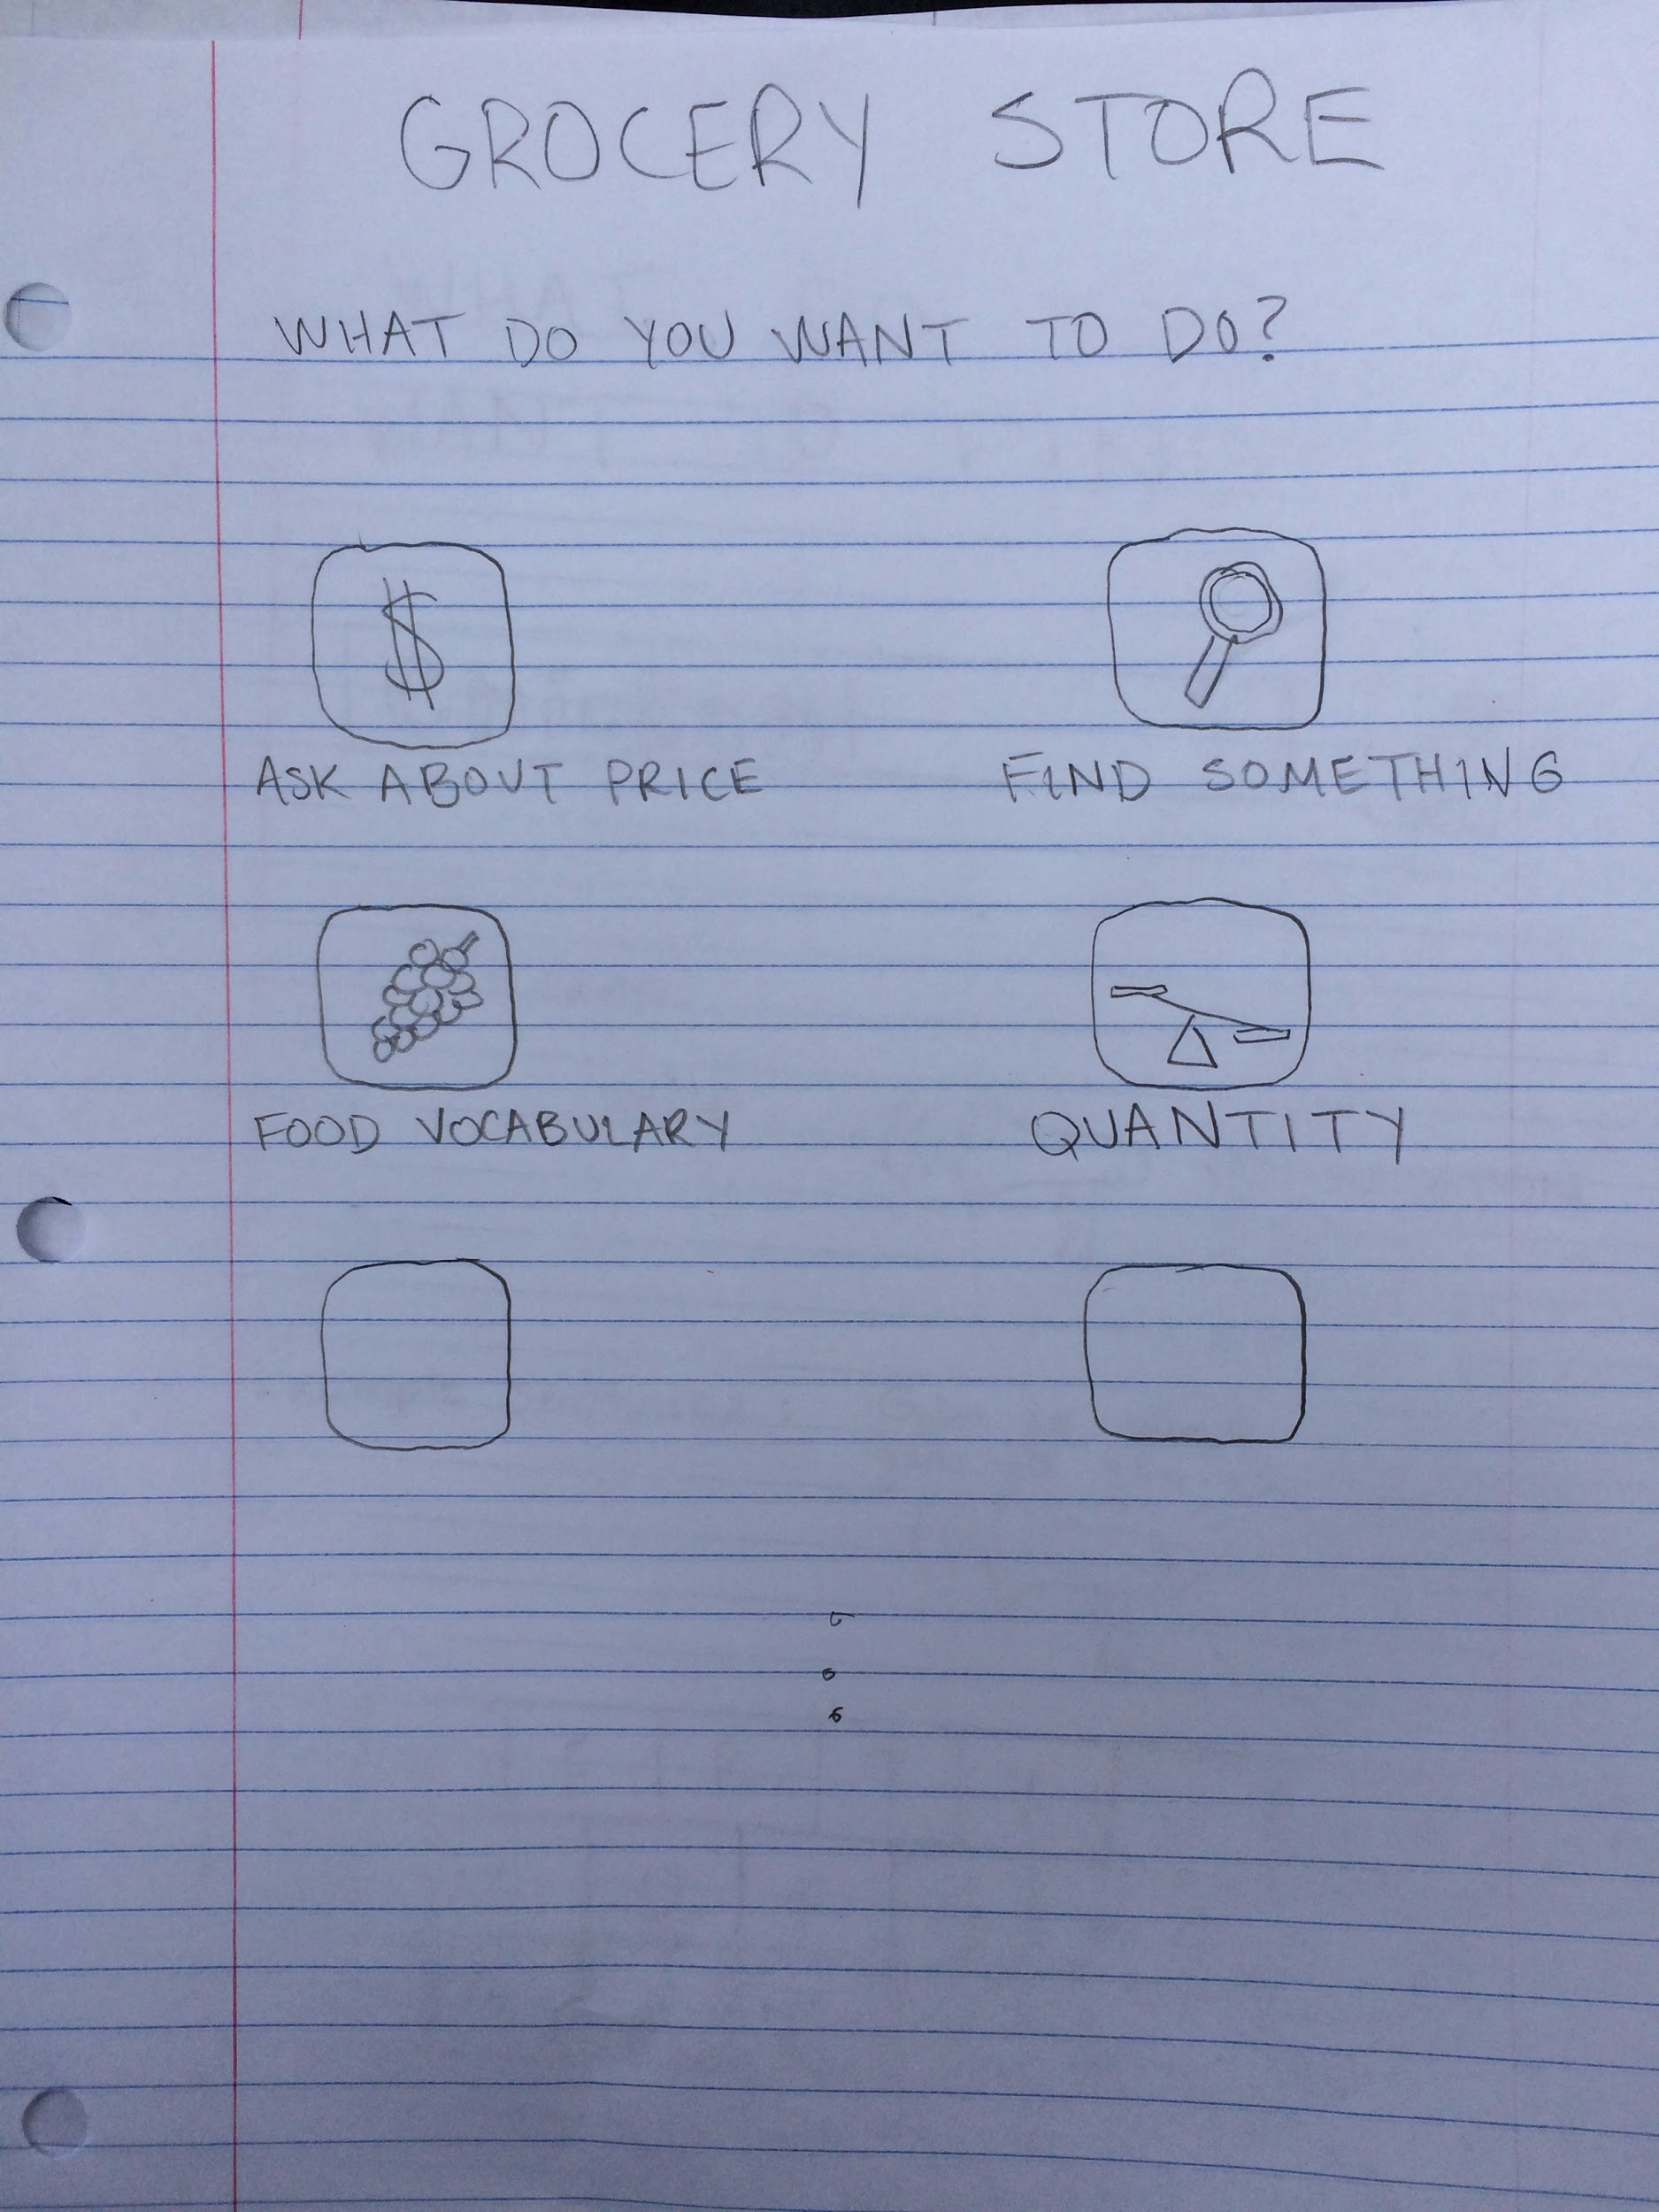 GROCERY STORE
WHAT DO YOU WANT TO DO?
$
ASK ABOUT PRICE
FIND SOMETHING
FOOD VOCABULARY
QUANTITY